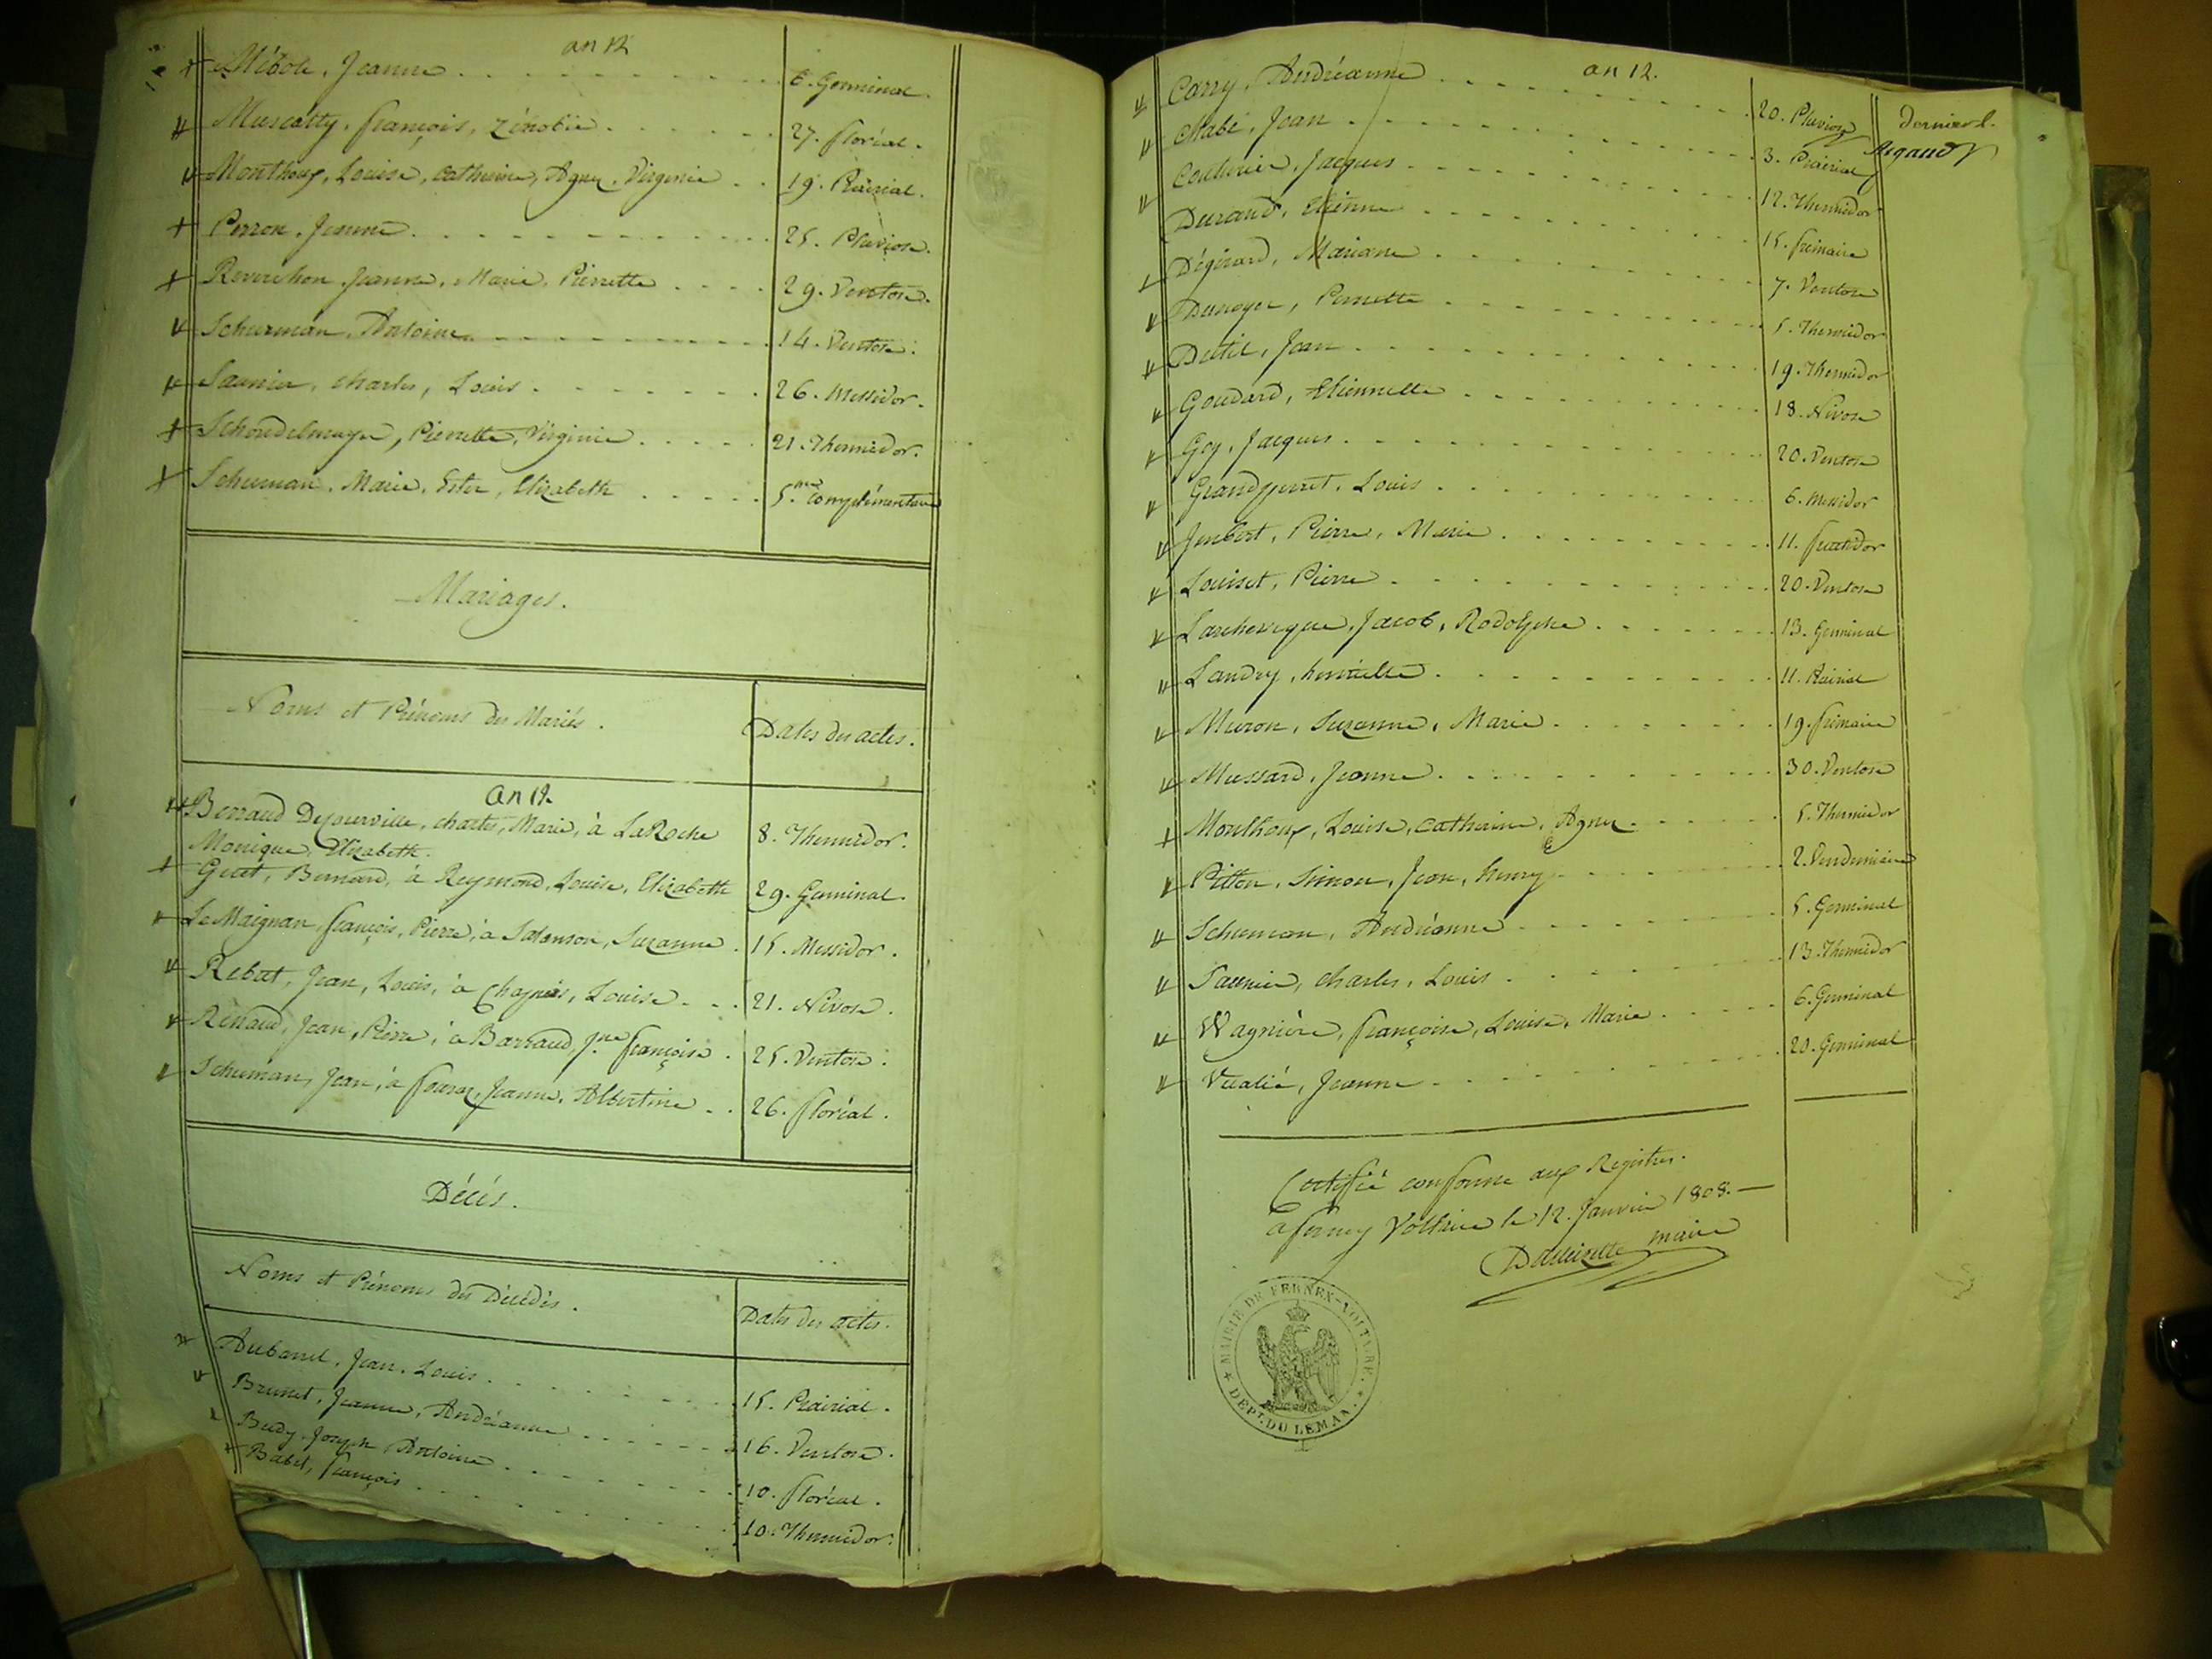 an 12
Mébole, Jeanne 6. Germinal.
Muscatty, françois, Zénobie 27. floréal.
Monthoux, Louise, Catherine, Agnez, Virginie 19. Prairial.
Perron, Jeanne 25. Pluviose.
Reverchon, Jeanne, Marie, Pierrette 29. Ventose.
Schurman, Antoine 14. Ventose.
Saunier, Charles, Louis 26. Messidor.
Schoudelmayer, Pierrette, Virginie 21. Thermidor.
Schuman, Marie, Ester, Elizabeth 5.me Complémentaire
Mariages.
Noms et Prénoms des Mariés. Dates des actes.
an 12.
Berraud Dejourville, charles, Marie, à LaRoche 8. Thermidor.
Monique, Elizabeth.
Guet, Bernard, à Reymond, Louise, Elizabeth 29. Germinal.
Le Maignan, françois, Pierre, à Salanson, Suzanne 15. Messidor.
Rebut, Jean, Louis, à Chapuis, Louise 21. Nivose.
Rénaud, Jean, Pierre, à Barraud, Jne. françoise 25. Ventose.
Schuman, Jean, à Jeanne, Albertine 26. floréal.
Décés.
Noms et Prénoms des Décédés. Dates des actes.
Aubanel, Jean, Louis 15. Prairial.
Brunet, Jeanne, Andréanne 16. Ventose.
Budy, Joseph, Antoine 10. floréal.
Babel, françois 10. Thermidor.
an 12.
Carry, Andréanne 20. Pluviose
dernier f.
Chabé, Jean 3. Prairial
Couturier, Jacques 12. Thermidor
Durand, Etienne 15. frimaire
Dégérard, Mariane 7. Ventose
Dunoyer, Pernette 5. Thermidor
Dutil, Jean 19. Thermidor
Goudard, Etiennette 18. Nivose
Goy, Jacques 20. Ventose
Grandperret, Louis 6. Messidor
Jenbert, Pierre, Marie 11. fructidor
Louiset, Pierre 20. Ventose
Larcheveque, Jacob, Rodolphe 13. Germinal
Landry, henriette 11. Prairial
Muron, Suzanne, Marie 19. frimaire
Mussard, Jeanne 30. Ventose
Monthoux, Louise, Catherine, Agnez 5. Thermidor
Pitton, Simon, Jean, henry 2. Vendemiaire
Schuman, Andréanne 5. Germinal
Saunier, charles, Louis 13. Thermidor
Wagnière, françoise, Louise, Marie 6. Germinal
Vualié, Jeanne 20. Germinal
Certiffié conforme aux Registres.
a ferney Voltaire le 12. Janvier 1808.
maire
MAIRIE DE FERNEX-VOLTAIRE.
DEPt. DU LEMAN.